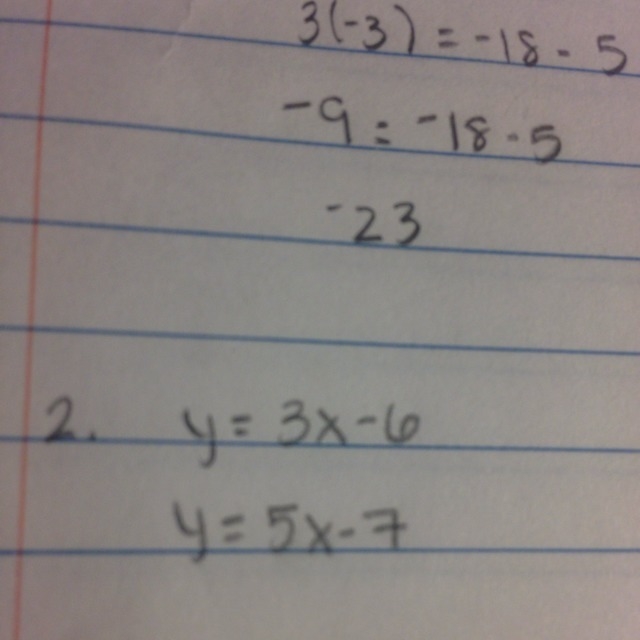 3(-3) = -18 - 5
-9 = -18 - 5
-23
2. y = 3x - 6
y = 5x - 7